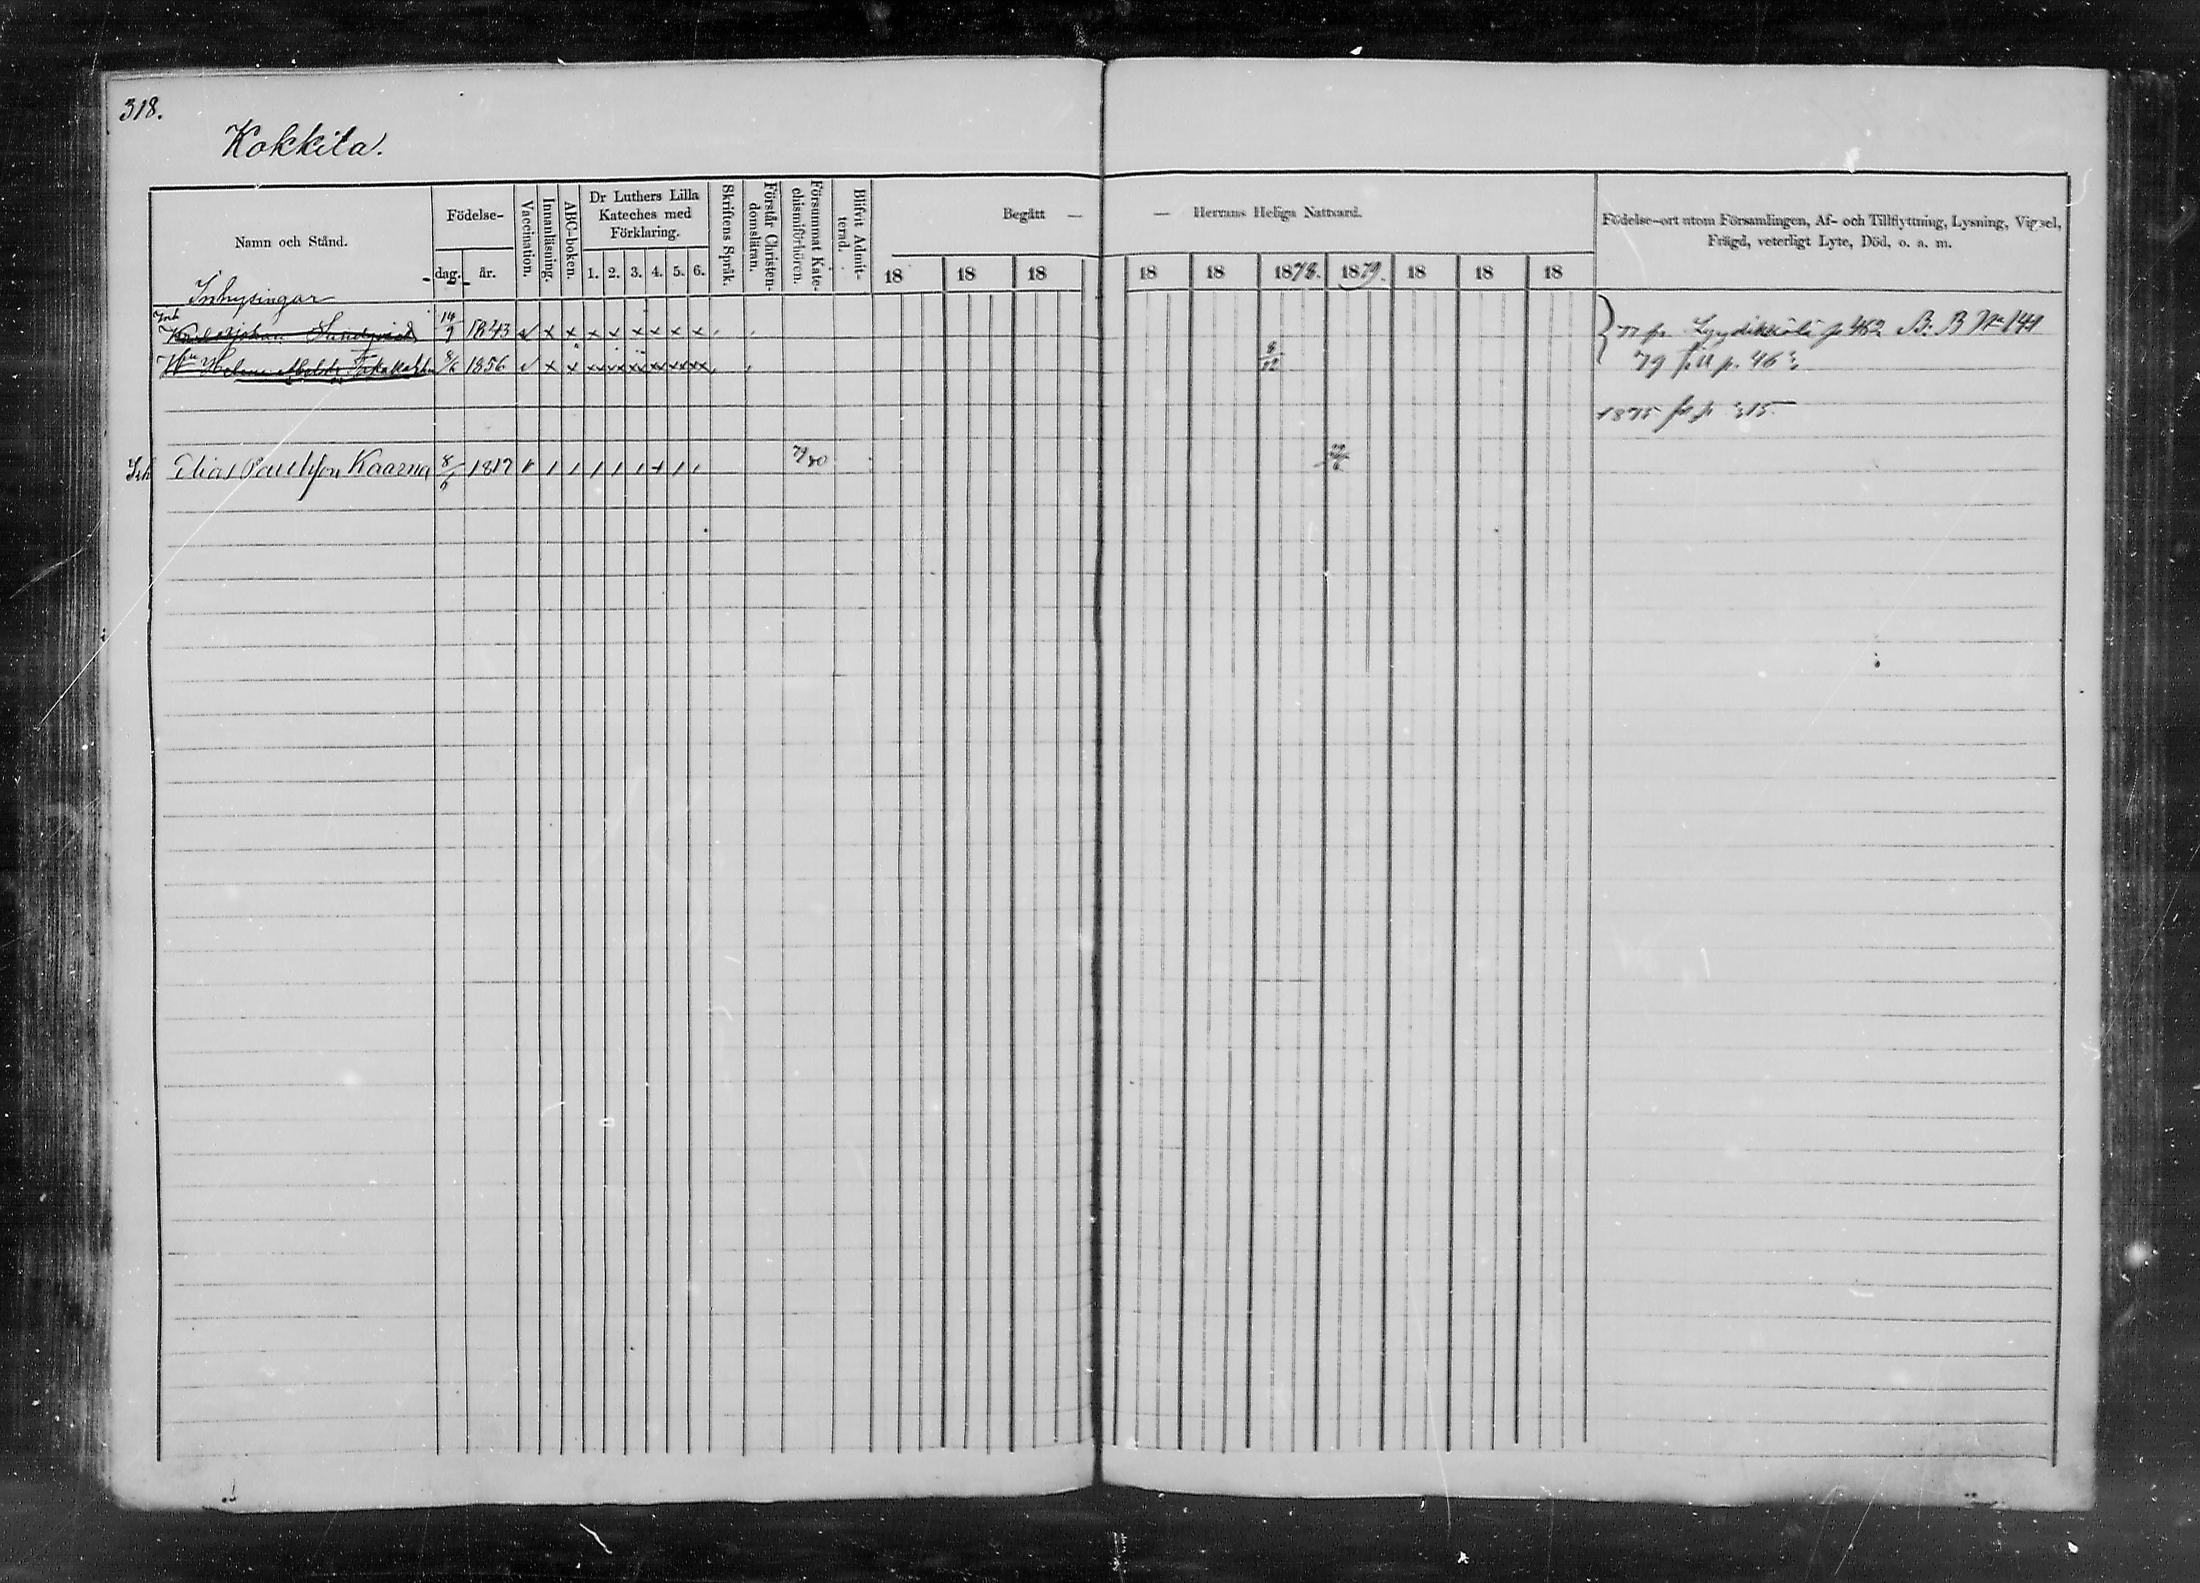 318.
Kokkila.
Namn och Stånd.
Födelse-
dag.
år.
Vaccination.
Innanläsning.
ABC-boken.
Dr Luthers Lilla
Kateches med
Förklaring.
1. 2. 3. 4. 5. 6.
Skriftens Språk.
Förstår Christen-
domsläran.
Försummat Kate-
chismiförhören.
Blifvit Admit-
terad.
Begått — — Herrans Heliga Nattvard.
18 18 18 18 18 1878. 1879. 18 18 18
Födelse-ort utom Församlingen, Af- och Tillflyttning, Lysning, Vigsel,
Frägd, veterligt Lyte, Död, o. a. m.
Inhysingar
Inh
Johan Sundqvist 14/9 1843 v x x x x x x x x 77 fr p 462 B: B No 141
Hu Helena 8/6 1856 v x x xx xx xx xx xx xx 8/12 79 till p. 46
1875 fr p 315
Inh Elias Paulsson Kaarna 8/6 1817 79/80